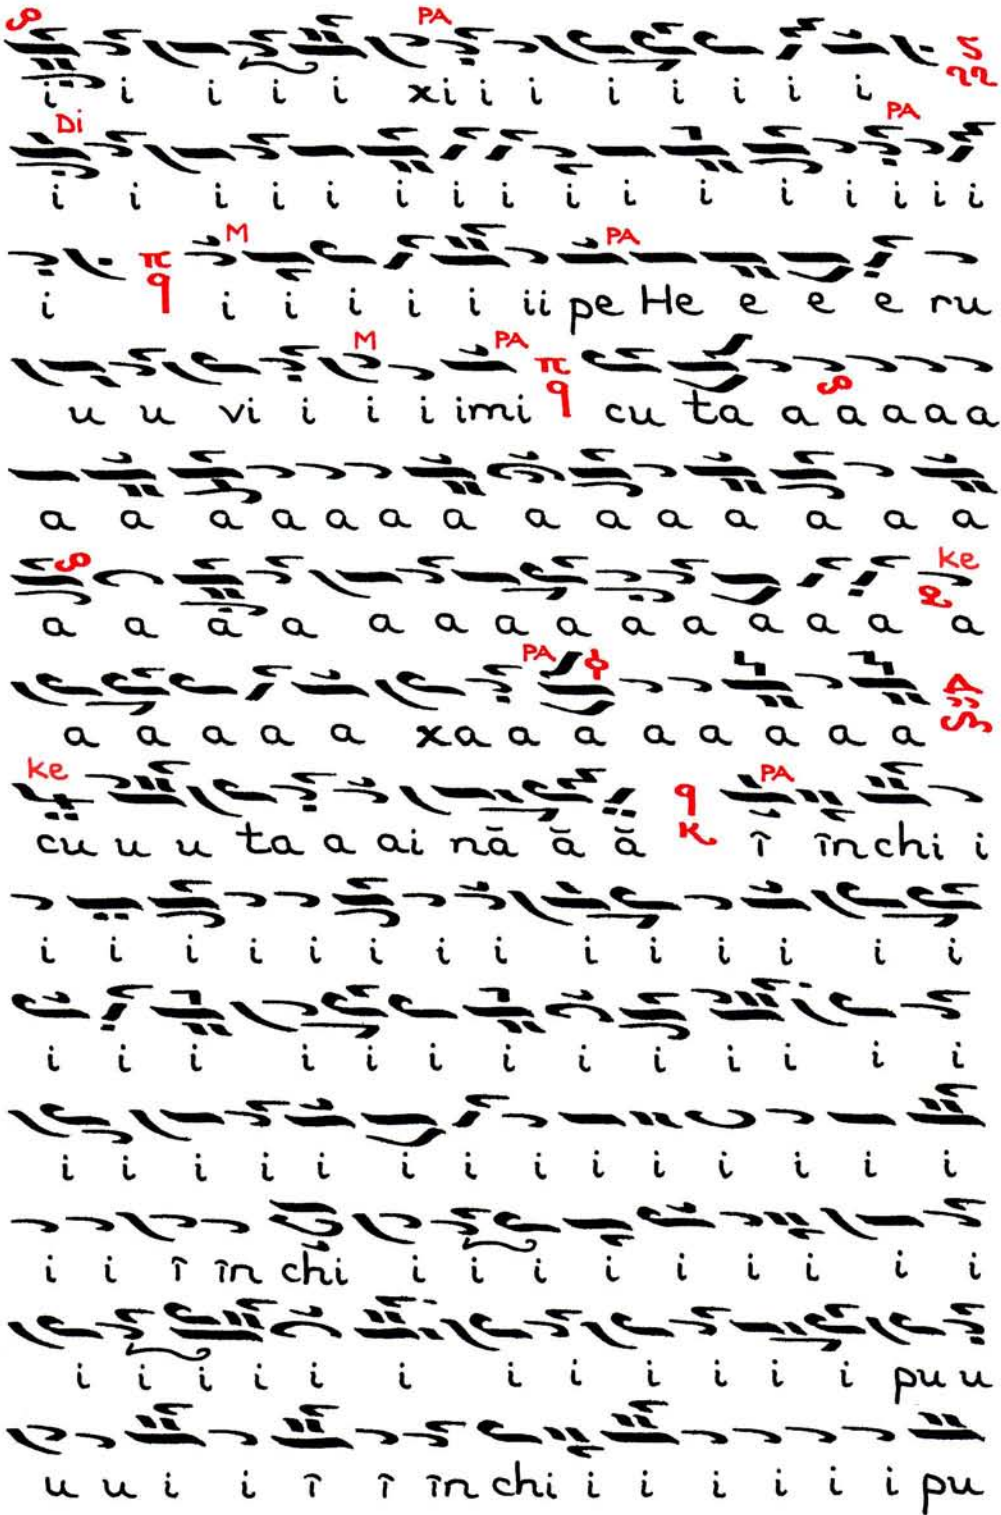 PA
i i i i i xi i i i i i i i
Di PA
i i i i i i i i i i i i i i i i
M PA
π q
i i i i i i ii pe He e e e ru
M PA
π q
u u vi i i i imi cu ta a a a a a
a a a a a a a a a a a a a a
ke
a a a a a a a a a a a a a a
PA
a a a a a xa a a a a a a a
ke PA
q κ
cu u u ta a ai nă ă ă î închi i
i i i i i i i i i i i i i i
i i i i i i i i i i i i i i
i i i i i i i i i i i i i i
i i î în chi i i i i i i i i i
i i i i i i i i i i i i pu u
u u i i î î în chi i i i i i i pu